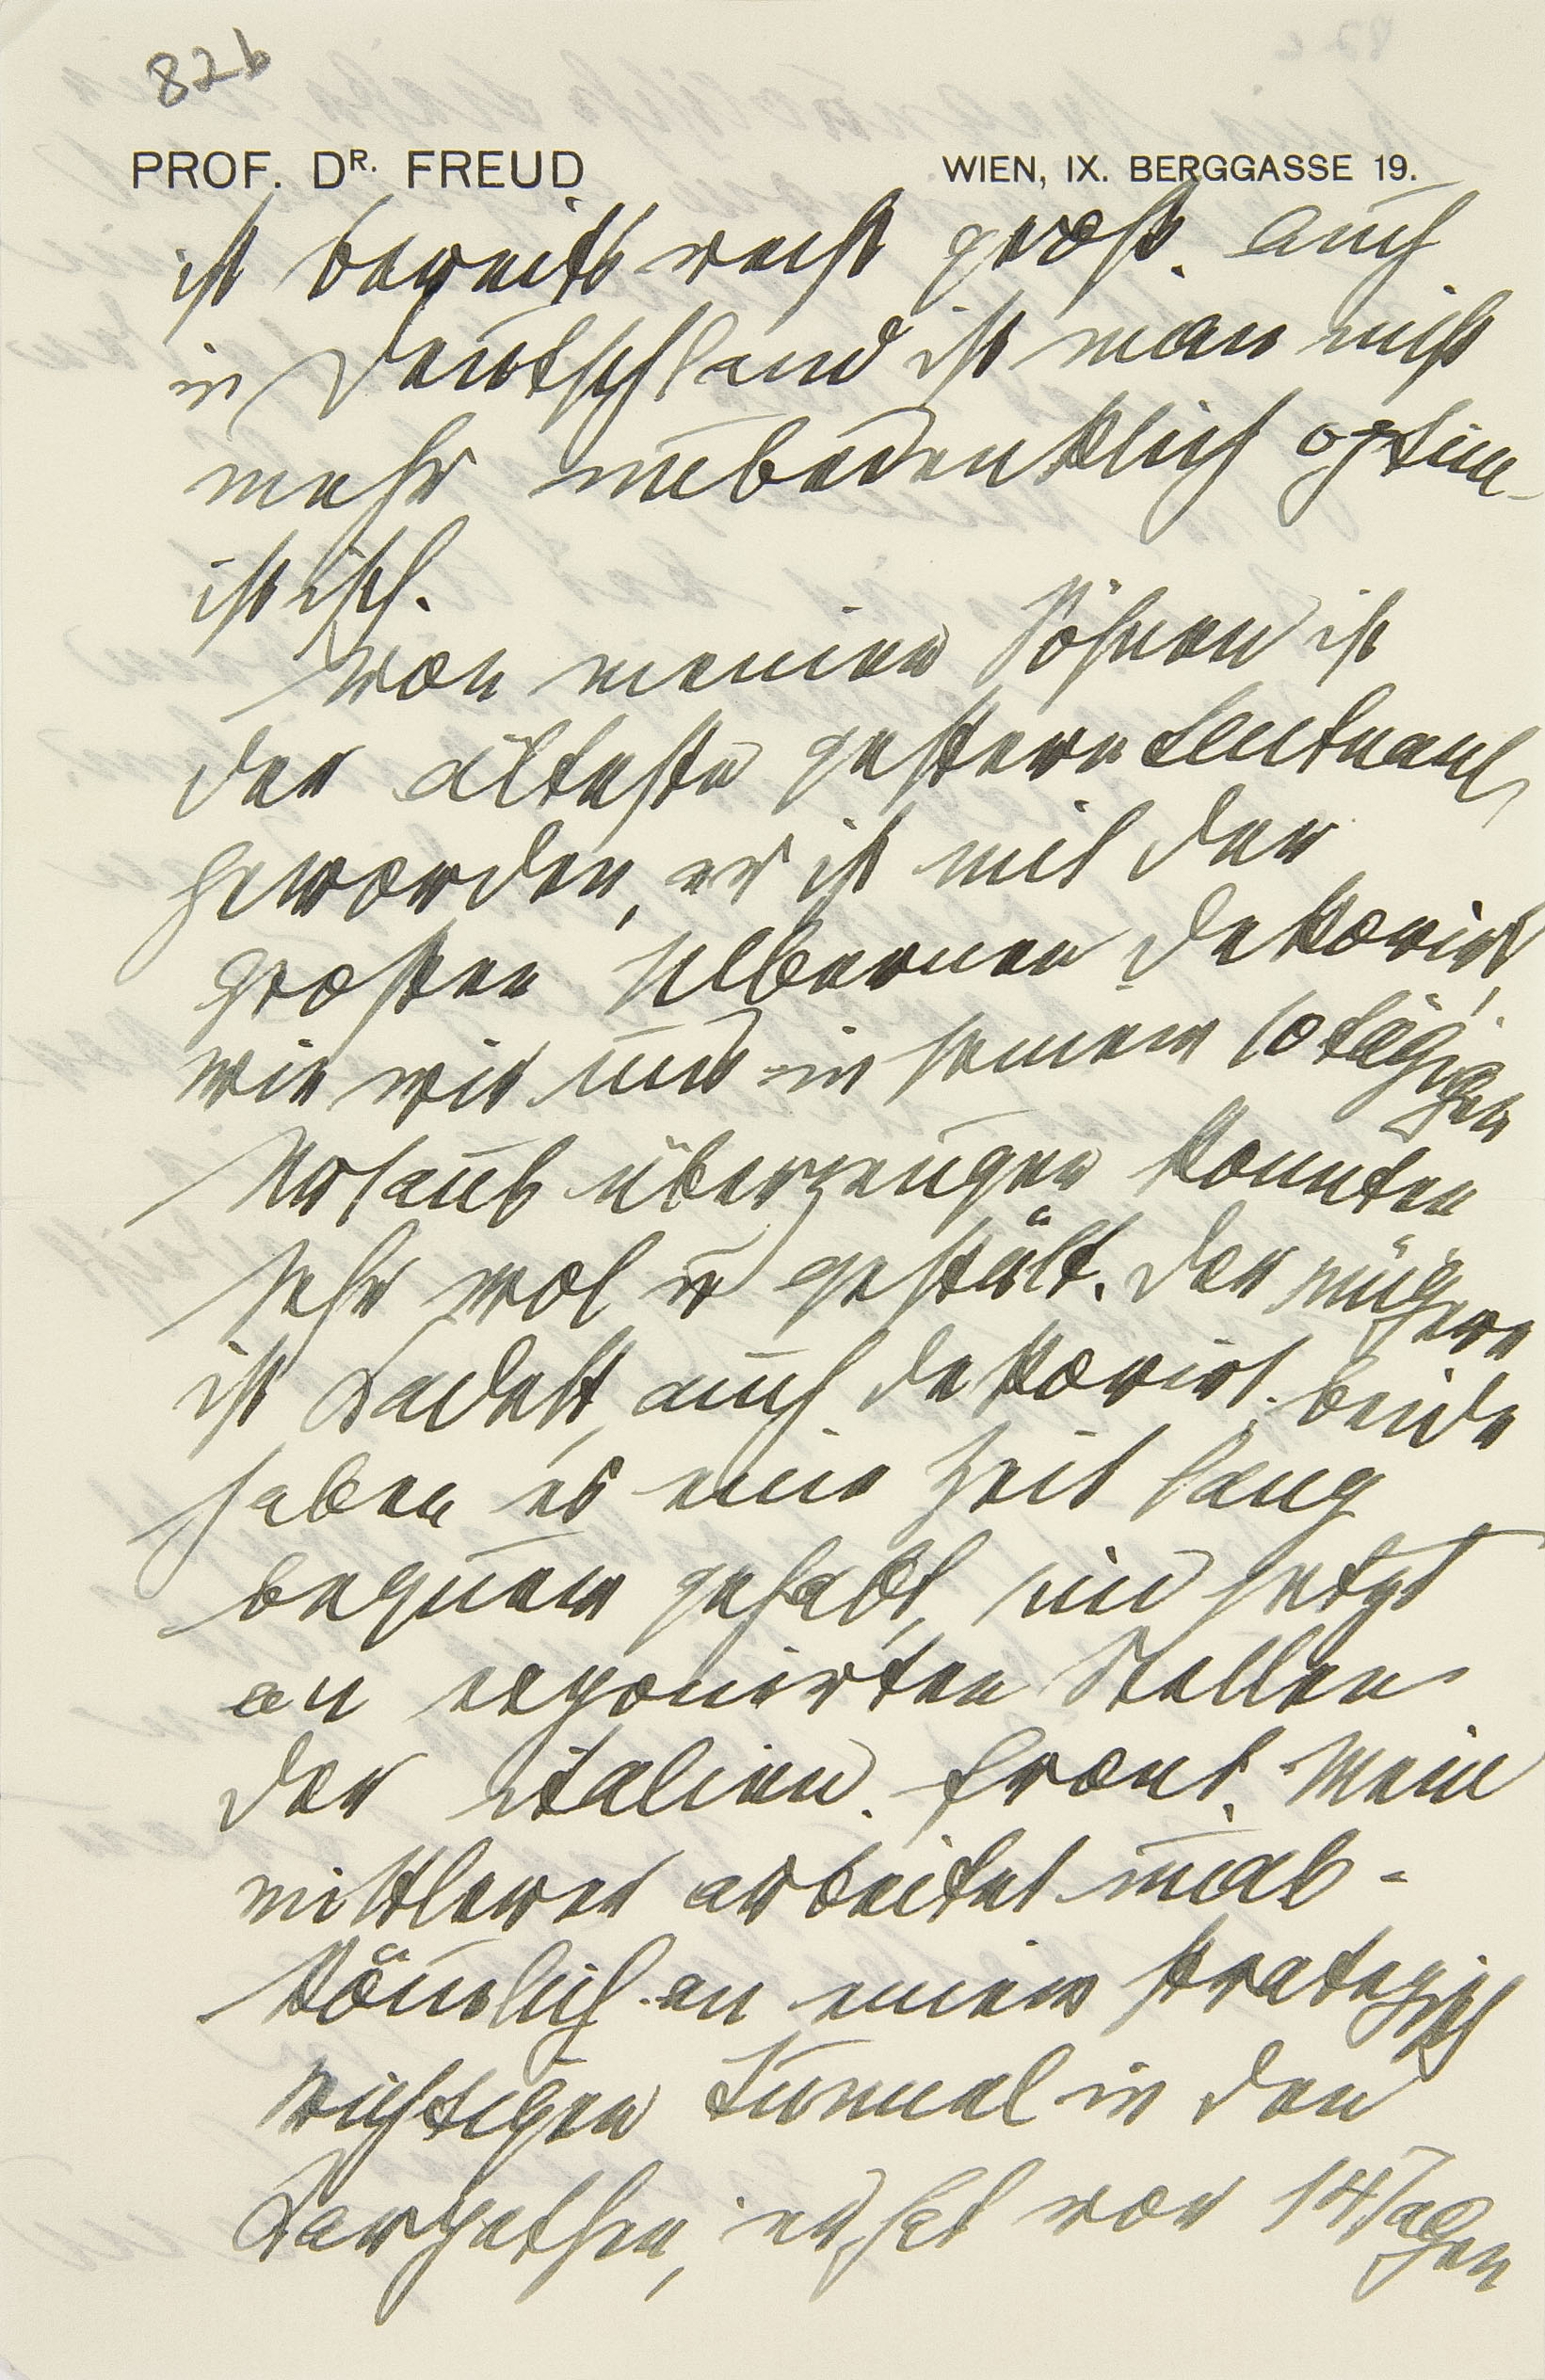 82b
PROF. DR. FREUD WIEN, IX. BERGGASSE 19.
ist bereits recht groß. Auch
in Deutschland ist man nicht
mehr unbedenklich optim-
istisch.
Von meinen Söhnen ist
der älteste gestern Leutnant
geworden, er ist mit der
großen silbernen dekorirt,
wie wir uns in seinem 10tägigen
Urlaub überzeugen konnten
sehr wol u gestält. Der jüngere
ist Kadett, auch dekorirt. beide
haben es eine Zeit lang
bequem gehabt, sind jetzt
an exponirten Stellen
der italien. Front. Mein
mittlerer arbeitet unab-
kömlich an einem strategisch
wichtigen Tunnel in den
Karpathen, er hat vor 14 Tagen